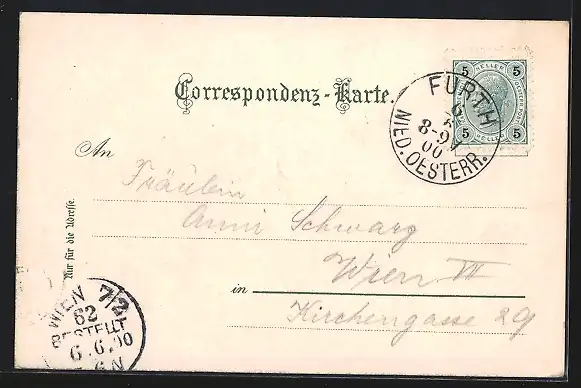 Correspondenz-Karte.
5 HELLER 5
5 5
FURTH
8-9V
00
NIED. OESTERR.
An
Fräulein
Anni Schwarz
Wien VII
in
Kirchengasse 29
Nur für die Adresse.
WIEN 7/2
62
BESTELLT
6.6.00